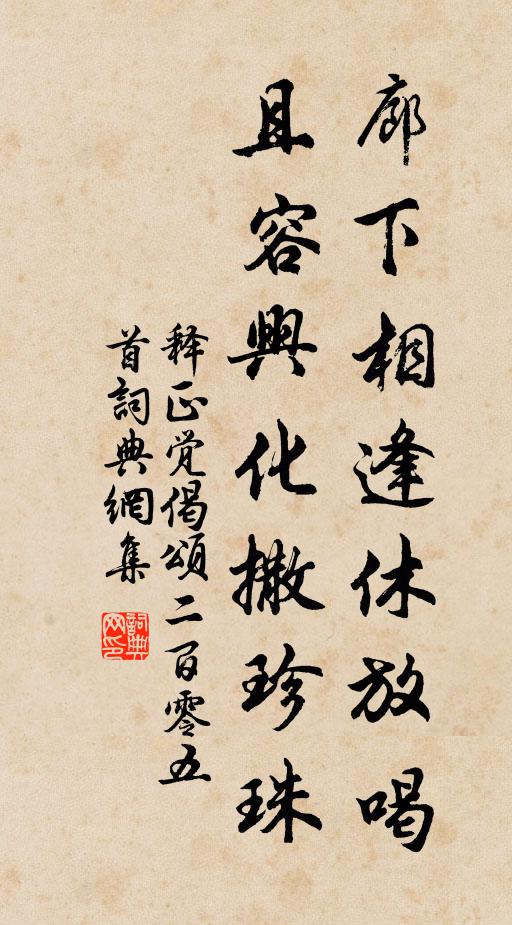 廊下相逢休放喝
且容興化撒珍珠
释正觉偈頌二百零五
首詞典網集
詞典
网印